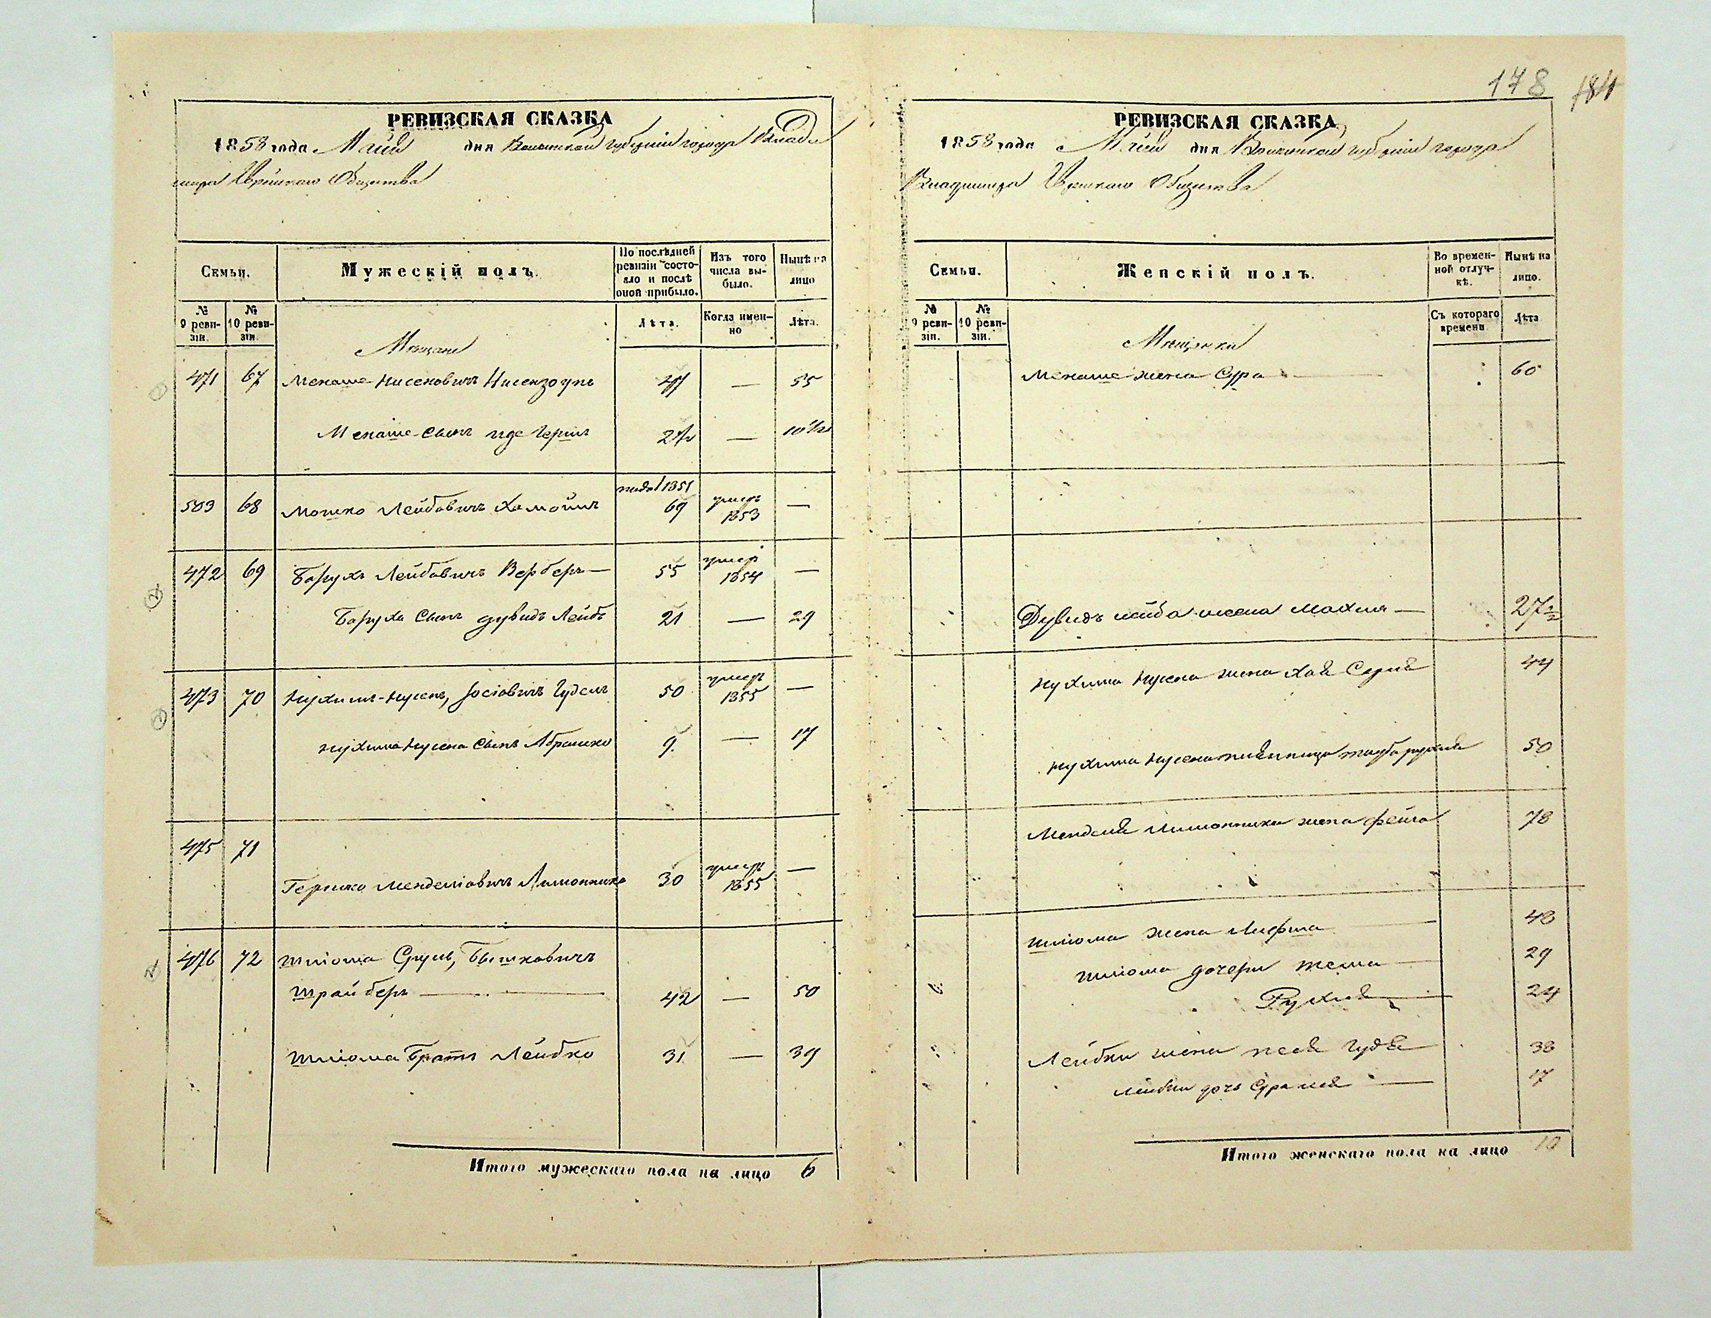 178 184
РЕВИЗСКАЯ СКАЗКА
1858 года Маия дня Волынской губерніи города Влади
мира Еврейскаго Общества
Семьи.
Мужескій полъ.
По послѣдней ревизіи состояло и послѣ оной прибыло.
Изъ того числа выбыло.
Нынѣ на лицо
№ 9 ревизіи.
№ 10 ревизіи.
Лѣта.
Когда именно
Лѣта.
Мещане
471 67 Менаше Нисеновичъ 47 — 55
Менаше сынъ Гершъ — 10 1/2
509 68 Мошко Лейбовичъ 69 умеръ 1853 —
472 69 Борухъ Лейбовичъ Верберъ — 55 умеръ 1854 —
Боруха сынъ Дувидъ Лейбъ 21 — 29
473 70 Нухимъ-Нусенъ, Іосіовичъ 50 умеръ 1855 —
Нухима Нусена сынъ Абрамко 9 — 17
475 71
Гершко Менделіовичъ 30 умеръ 1855 —
476 72 Шліома Сруль, Бышковичъ
Шрайберъ — 42 — 50
Шліома братъ Лейбко 31 — 39
Итого мужескаго пола на лицо 6
РЕВИЗСКАЯ СКАЗКА
1858 года Маия дня Волынской губерніи города
Владимира Еврейскаго Общества
Семьи.
Женскій полъ.
Во временной отлучкѣ.
Нынѣ на лицо.
№ 9 ревизіи.
№ 10 ревизіи.
Съ котораго времени
Лѣта
Мещанки
Менаше жена Сура — 60
Дувидъ Лейба жена Махля — 27
Нухима Нусена жена Хая 44
Нухима Нусена 50
Менделя жена Фейга 78
Шліома жена 48
Шліома дочери 29
Рухля — 24
Лейбки жена Песя 38
Лейбки дочь — 17
Итого женскаго пола на лицо 10